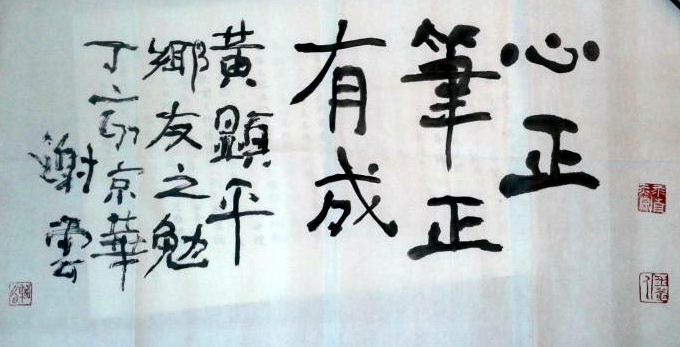 心正
筆正
有成
黃顯平
鄉友之勉
丁亥京華
謝雲